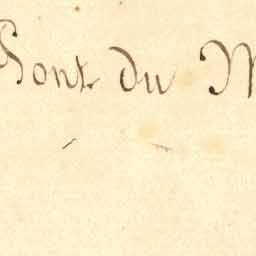 Pont du M